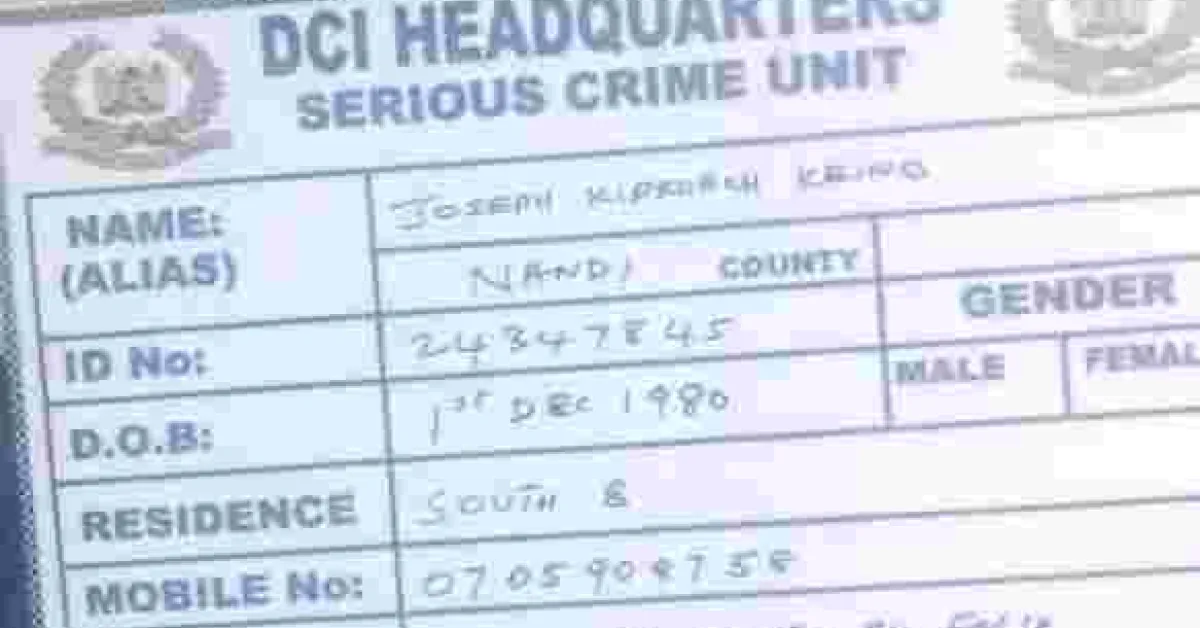 DCI HEADQUARTERS
SERIOUS CRIME UNIT
NAME: JOSEPH KIPKORICH KEINO
(ALIAS) NANDI COUNTY
GENDER
ID No: 24347845
MALE FEMAL
D.O.B: 1ST DEC 1980
RESIDENCE SOUTH B
MOBILE No: 0705908758